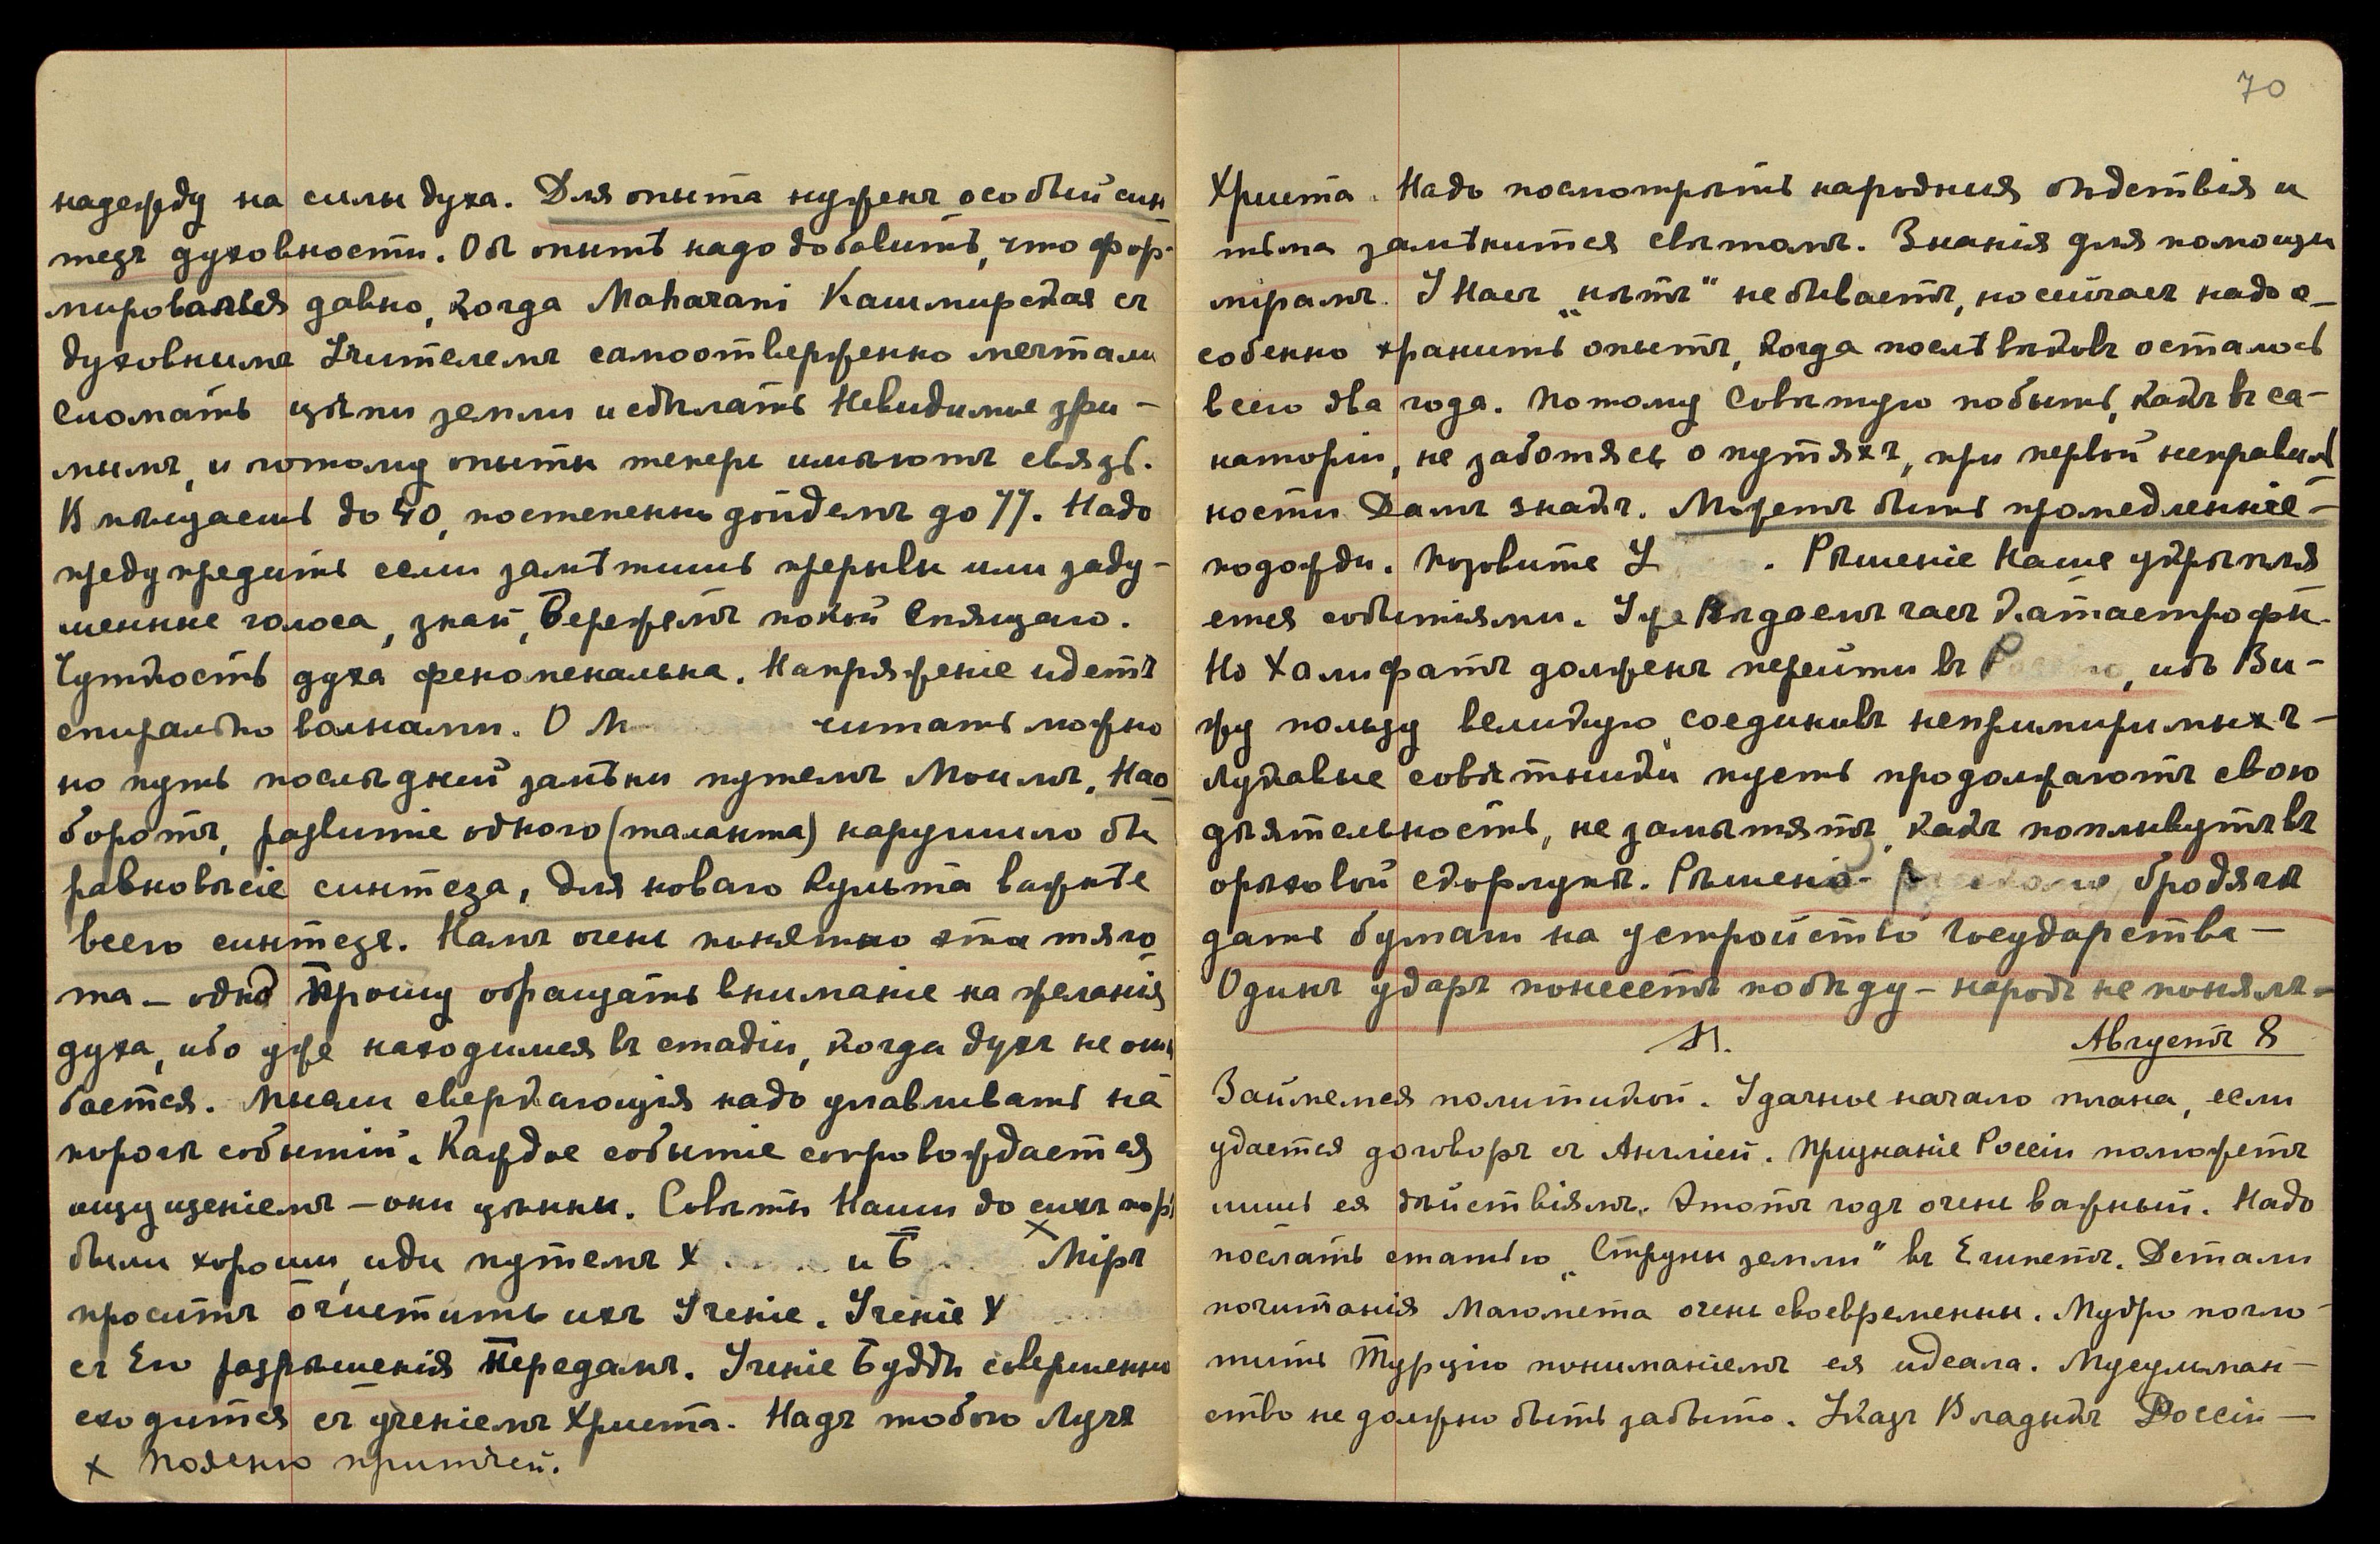 надежду на силы духа. Для опыта нуженъ особый син
тезъ духовности. Объ опытѣ надо добавить, что фор-
мировался давно, когда Maharani Кашмирская съ
духовнымъ Учителемъ самоотверженно мечтали
сломать цѣпи земли и сдѣлать Невидимые зри-
мымъ, и потому опыты теперь имѣютъ связь.
Вмѣщаешь до 40, постепенно дойдемъ до 77. Надо
предупредить если замѣтишь прерывы или заду-
шенные голоса, знай, Бережемъ покой Спящаго.
Чуткость духа феноменальна. Напряженіе идетъ
спирально волнами. О М читать можно
но путь послѣдній замѣни путемъ Моимъ. Нао
боротъ, развитіе одного (таланта) нарушило бы
равновѣсіе синтеза, для новаго Культа важнѣе
всего синтезъ. Намъ очень понятно эта тяго
та - одно Прошу обращать вниманіе на желанія
духа, ибо уже находимся въ стадіи, когда духъ не оши
бается. Мысли сверкающія надо улавливать на
порогѣ событій. Каждое событіе сопровождается
ощущеніемъ - они цѣнны. Совѣты Наши до сихъ поръ
были хороши, иди путемъ Х и Б х Міръ
проситъ очистить ихъ Ученіе. Ученіе Х
съ Его разрѣшенія Передамъ. Ученіе Будды совершенно
сходится съ ученіемъ Христа. Надъ тобою Лучъ
х Поясню притчей.
70
Христа. Надо посмотрѣть народныя бѣдствія и
тьма замѣнится свѣтомъ. Знанія для помощи
мірамъ. У Насъ „нѣтъ" не бываетъ, но сейчасъ надо о-
собенно хранить опытъ, когда послѣ вѣковъ осталось
всего два года. Потому Совѣтую побыть, какъ въ са-
наторіи, не заботясь о путяхъ, при первой неправиль
ности Дамъ знакъ. Можетъ быть промедленніе -
подожди. Позовите У . Рѣшеніе Наше укрѣпля
ется событіями. Уже Вѣдаемъ часъ катастрофы.
Но Халифатъ долженъ перейти въ Россію, ибо Ви-
жу пользу великую, соединивъ непримиримыхъ -
Лукавые совѣтники пусть продолжаютъ свою
дѣятельность, не замѣтятъ, какъ поплывутъ въ
орѣховой скорлупѣ. Рѣшено бродягѣ
дать бумаги на устройство Государства -
Одинъ ударъ понесетъ побѣду - народъ не понялъ -
М. Августъ 8
Займемся политикой. Удачное начало плана, если
удается договоръ съ Англіей. Признаніе Россіи поможетъ
лишь ея дѣйствіямъ. Этотъ годъ очень важный. Надо
послать статью „Струны земли" въ Египетъ. Детали
почитанія Магомета очень своевременны. Мудро погло-
тить Турцію пониманіемъ ея идеала. Мусульман-
ство не должно быть забыто. Указъ Владыкъ Россіи -